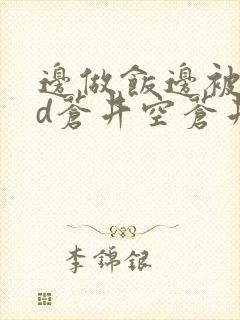 邊做飯邊被
d蒼井空蒼井
李錦銀